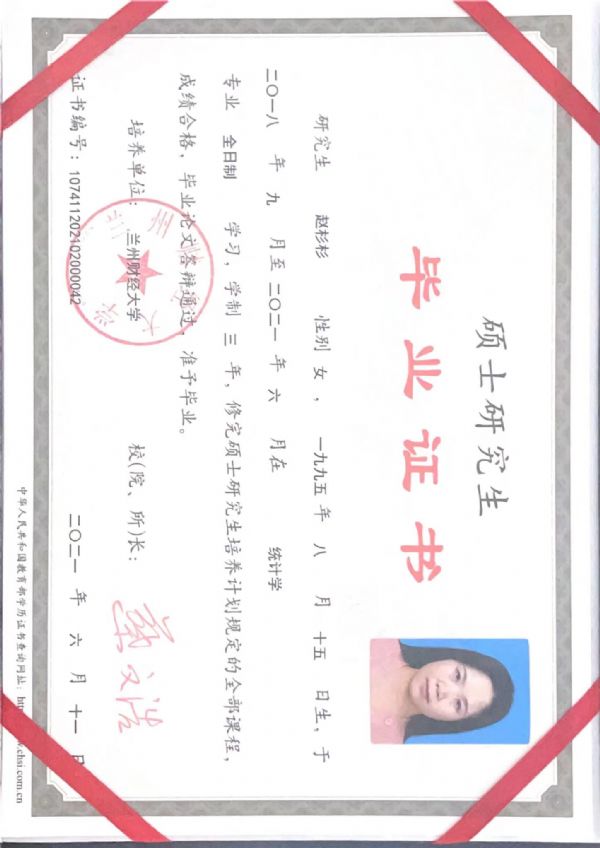 硕士研究生
毕业证书
研究生 赵杉杉 性别 女 ， 一九九五 年 八 月 十五 日生，于
二〇一八 年 九 月至 二〇二一 年 六 月在 统计学
专业 全日制 学习，学制 三 年，修完硕士研究生培养计划规定的全部课程，
成绩合格，毕业论文答辩通过，准予毕业。
培养单位： 兰州财经大学 校(院、所)长：
证书编号：107411202102000042 二〇二一 年 六 月 十一 日
中华人民共和国教育部学历证书查询网址：